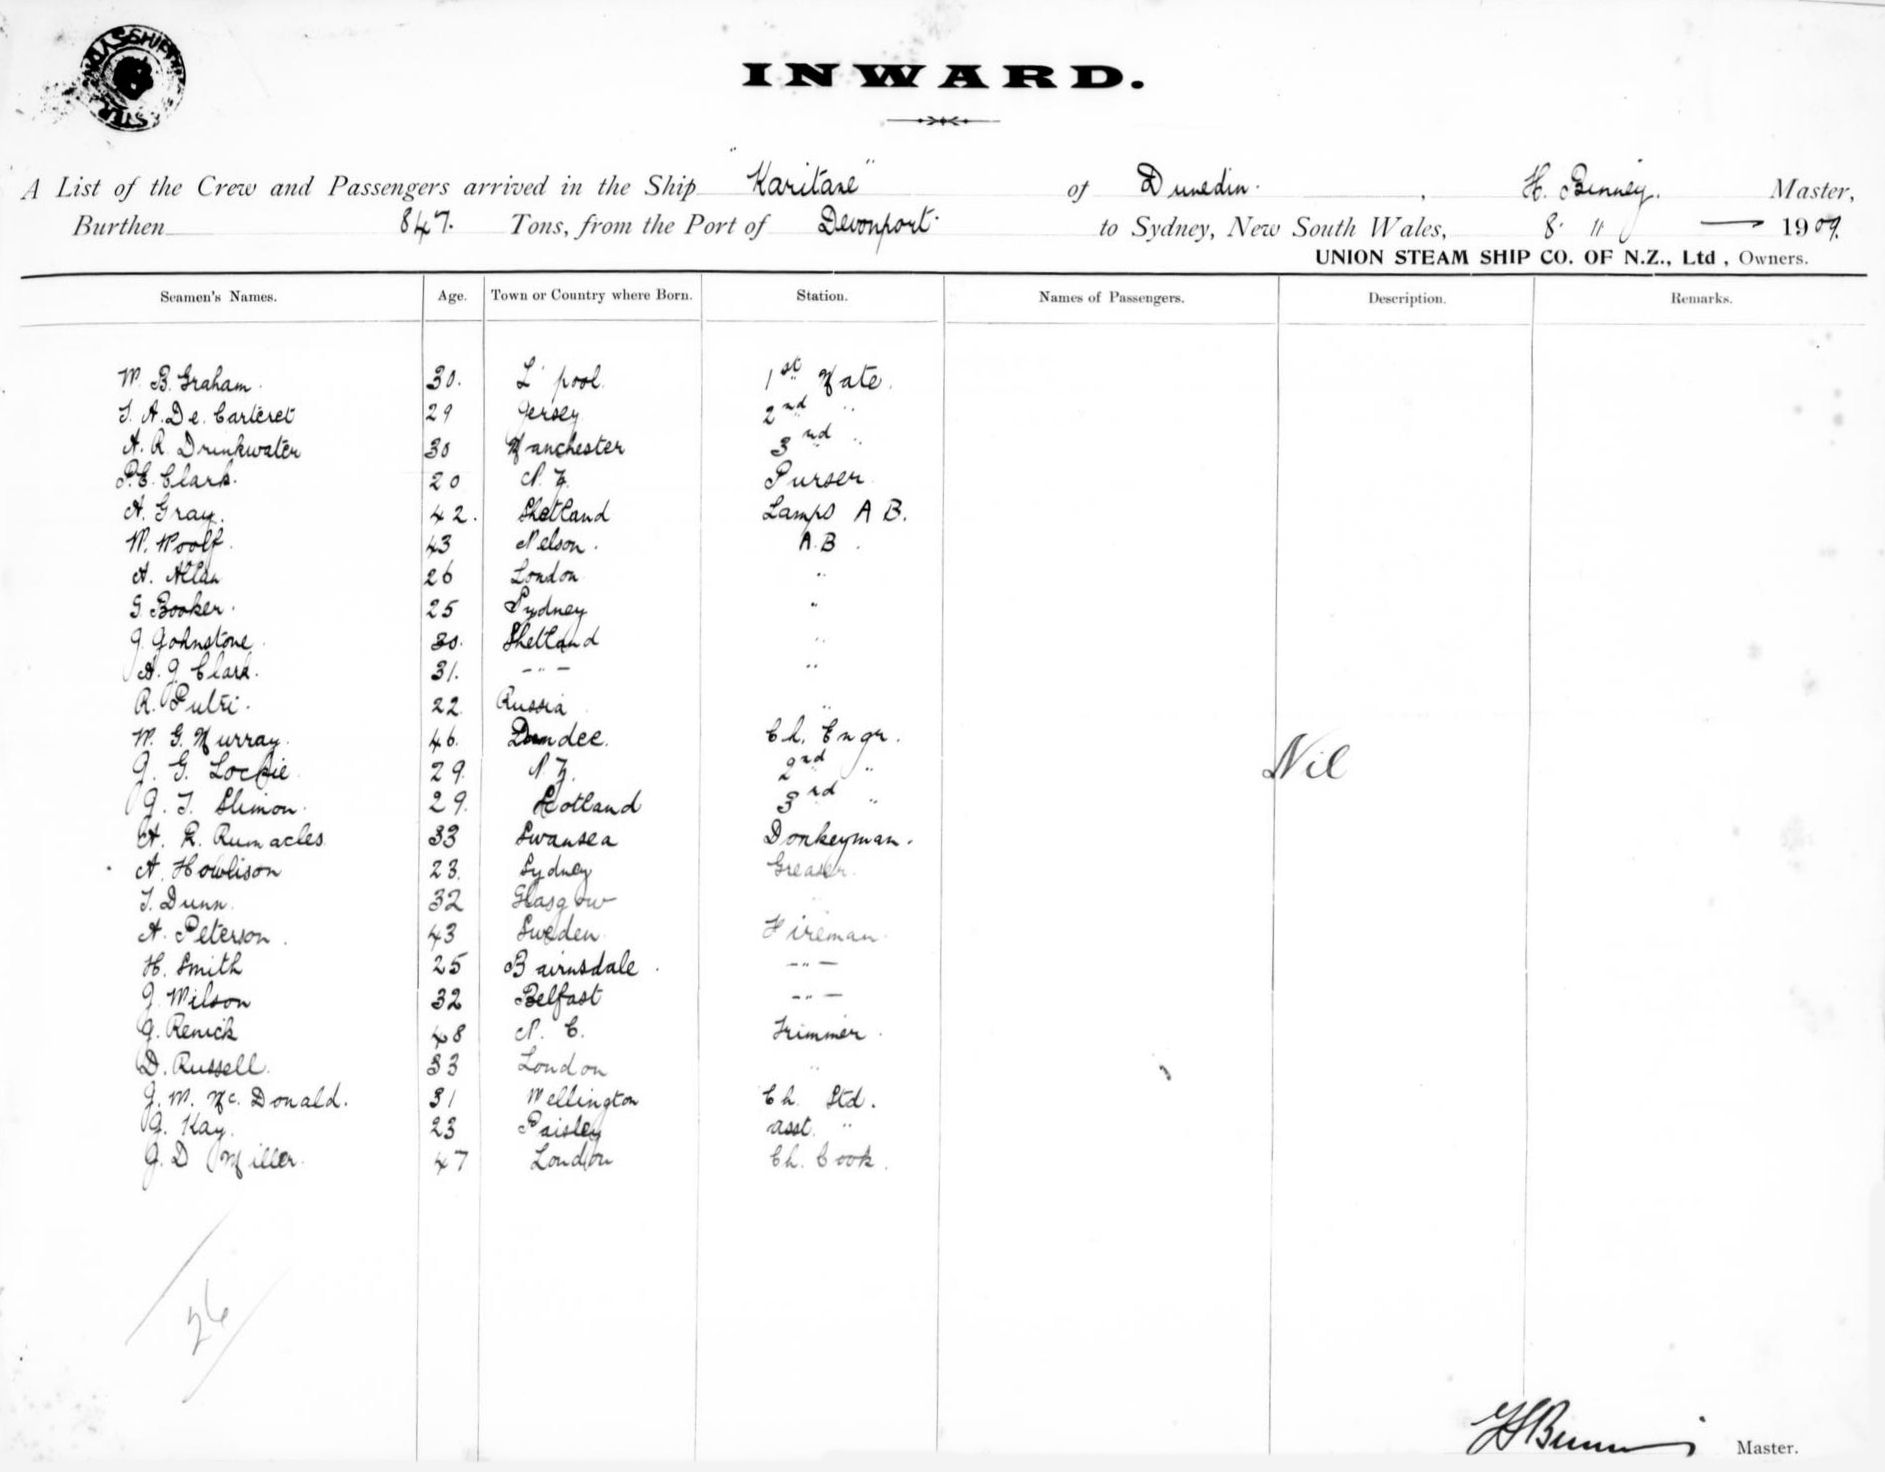 INWARD.
A List of the Crew and Passengers arrived in the Ship "Karitane" of Dunedin. , H. Binney. Master,
Burthen 847. Tons, from the Port of Devonport. to Sydney, New South Wales, 8. 11 1909.
UNION STEAM SHIP CO. OF N.Z., Ltd, Owners.
Seamen's Names. Age. Town or Country where Born. Station. Names of Passengers. Description. Remarks.
W. B. Graham. 30. L'pool. 1st Mate.
T. A. De. Carteret 29 Jersey 2nd "
A. R. Drinkwater 30 Manchester 3rd "
P. E. Clark. 20 N. Z. Purser
A. Gray. 42. Shetland Lamps A B.
W. Woolf. 43 Nelson. A. B.
A. Allan 26 London "
G Booker. 25 Sydney "
J. Johnstone. 30. Shetland "
A. J. Clark. 31. — " — "
R. Putri. 22 Russia "
W. G. Murray. 46. Dundee. Ch. Engr.
J. G. Lockie 29 N. Z. 2nd "
J. T. Slimon. 29. Scotland 3rd "
A. R. Rumacles 33 Swansea Donkeyman.
A. Howlison 23. Sydney Greaser.
T. Dunn. 32 Glasgow "
A. Peterson. 43 Sweden. Fireman.
H. Smith 25 Bairnsdale. — " —
J. Wilson 32 Belfast — " —
G. Renick 48 N. C. Trimmer.
D. Russell. 33 London "
J. M. McDonald. 31 Wellington Ch. Std.
G. Kay. 23 Paisley asst. "
J. D Miller. 47 London Ch. Cook.
Nil
26
H Binney Master.